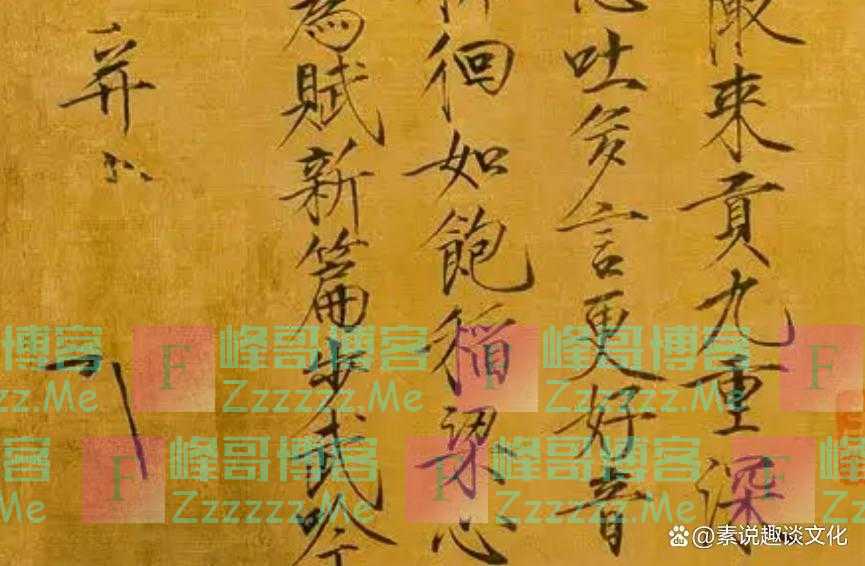 陬來貢九重深
吐多言更好音
徊如飽稻粱心
為賦新篇步武吟
并
峰哥博客
Zzzzzz.Me
F
峰哥博客
Zzzzzz.Me
F
峰哥博客
Zzzzzz.Me
F
峰哥博客
Zzzzzz.Me
F
@素说趣谈文化